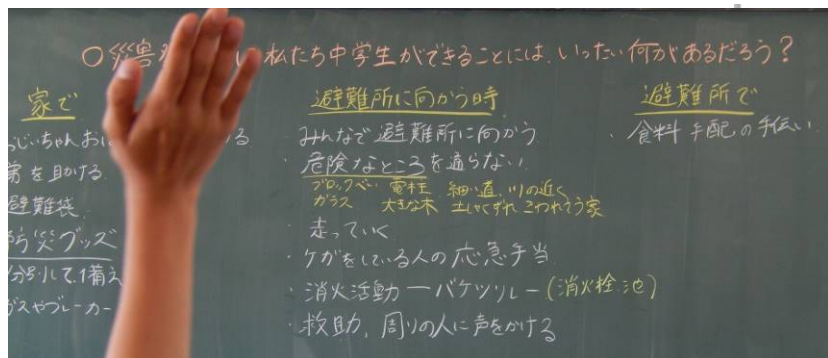 〇災害 私たち中学生ができることには、いったい何があるだろう？
家で
じいちゃんおば る
弟を助ける
避難袋
防災グッズ
備え
ガスやブレーカー
避難所に向かう時
みんなで避難所に向かう
・危険なところを通らない
ブロックべい 電柱 細い道 川の近く
ガラス 大きな木 土しゃくずれ こわれてる家
・走っていく
・ケガをしている人の応急手当
・消火活動ーバケツリレー(消火栓.池)
・救助、周りの人に声をかける
避難所で
・食料手配の手伝い